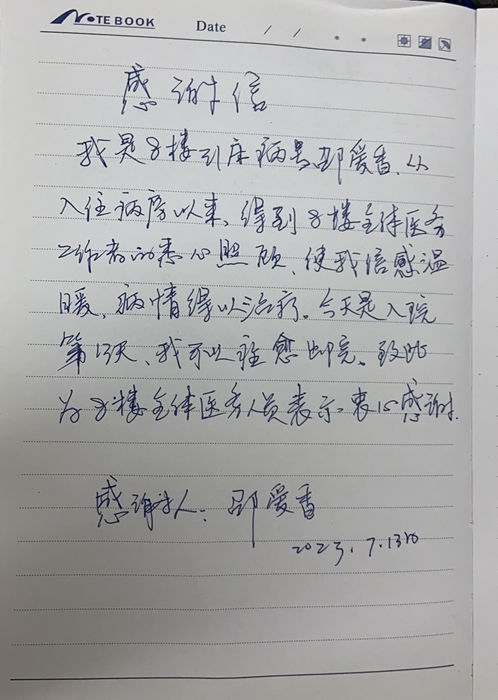 NOTEBOOK Date / /
感谢信
我是8楼引床病员邵爱香.从
入住病房以来、得到8楼全体医务
工作者的悉心照顾、使我倍感温
暖、病情得以治疗。今天是入院
第13天、我可以痊愈出院。致此
为8楼全体医务人员表示衷心感谢.
感谢人:邵爱香
2023.7.13日